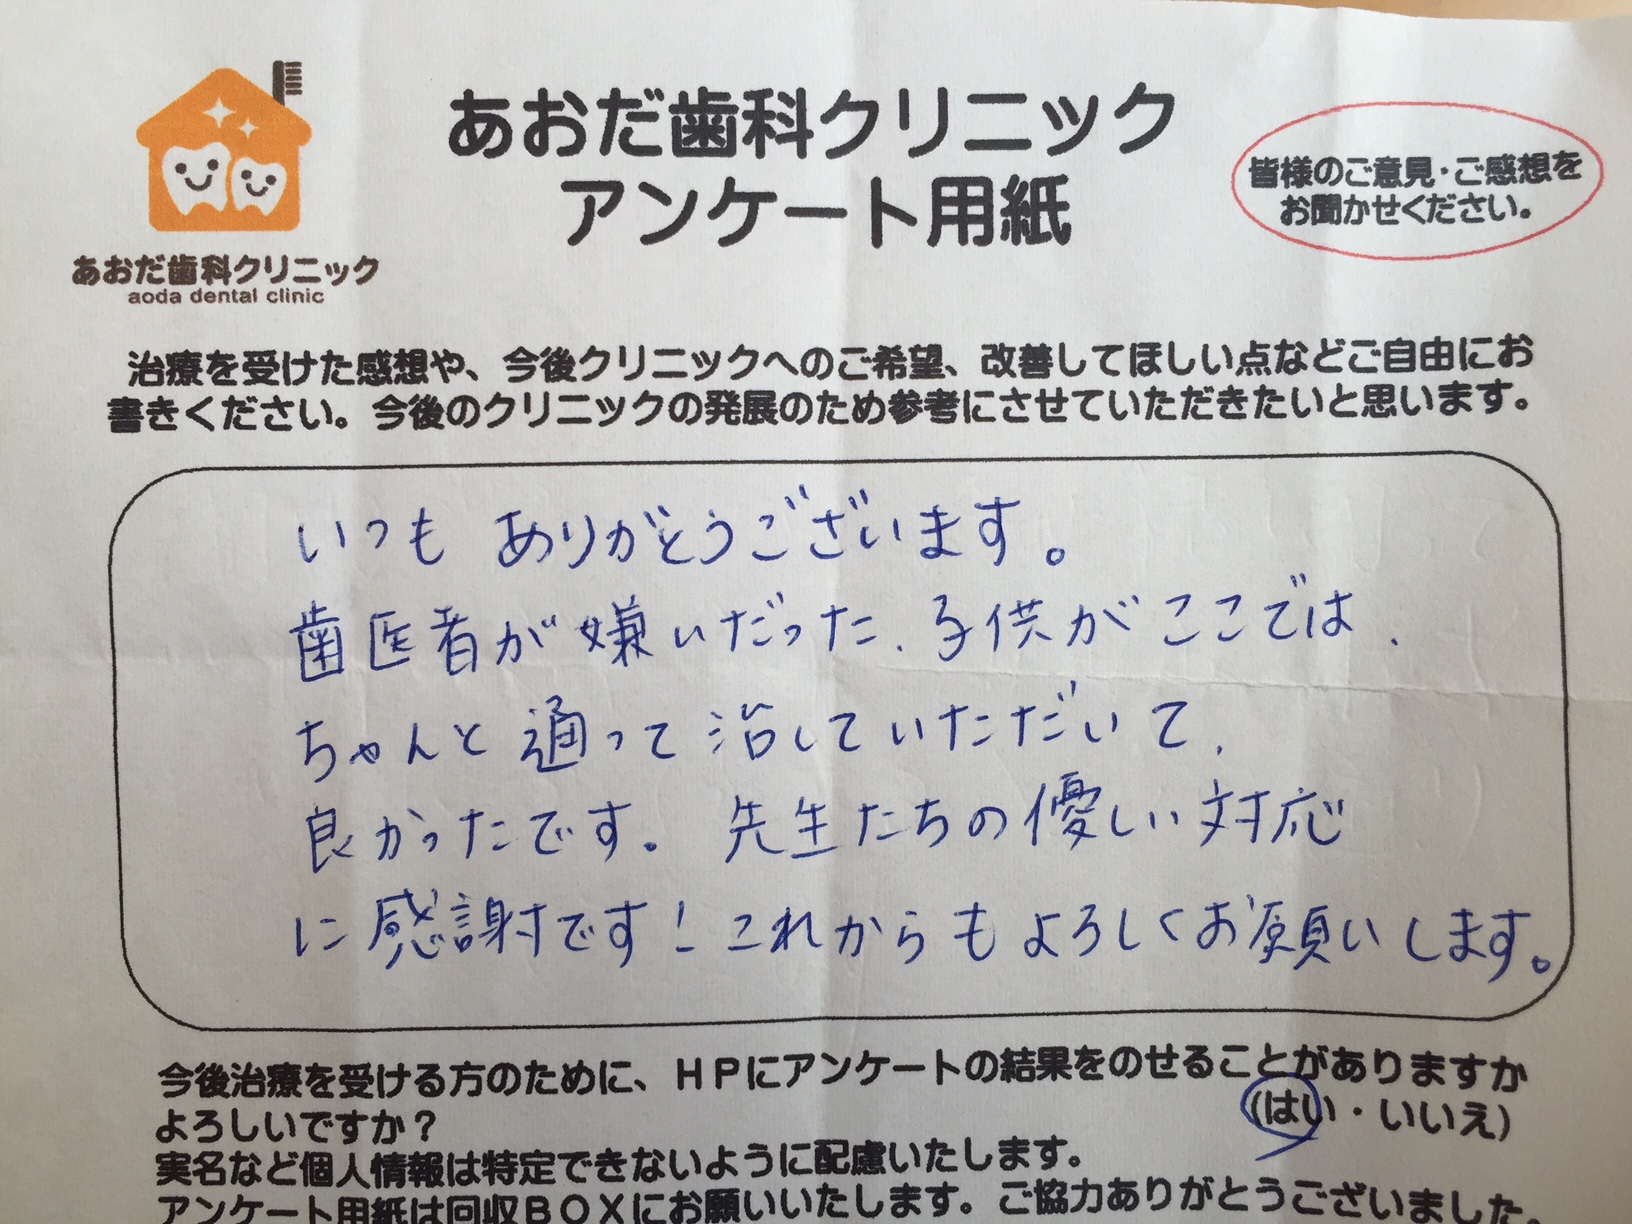 あおだ歯科クリニック
アンケート用紙
皆様のご意見・ご感想を
お聞かせください。
あおだ歯科クリニック
aoda dental clinic
治療を受けた感想や、今後クリニックへのご希望、改善してほしい点などご自由にお
書きください。今後のクリニックの発展のため参考にさせていただきたいと思います。
いつも ありがとうございます。
歯医者が嫌いだった、子供がここでは、
ちゃんと通って治していただいて、
良かったです。先生たちの優しい対応
に感謝です!これからもよろしくお願いします。
今後治療を受ける方のために、HPにアンケートの結果をのせることがありますか
よろしいですか?
(はい・いいえ)
実名など個人情報は特定できないように配慮いたします。
アンケート用紙は回収BOXにお願いいたします。ご協力ありがとうございました。